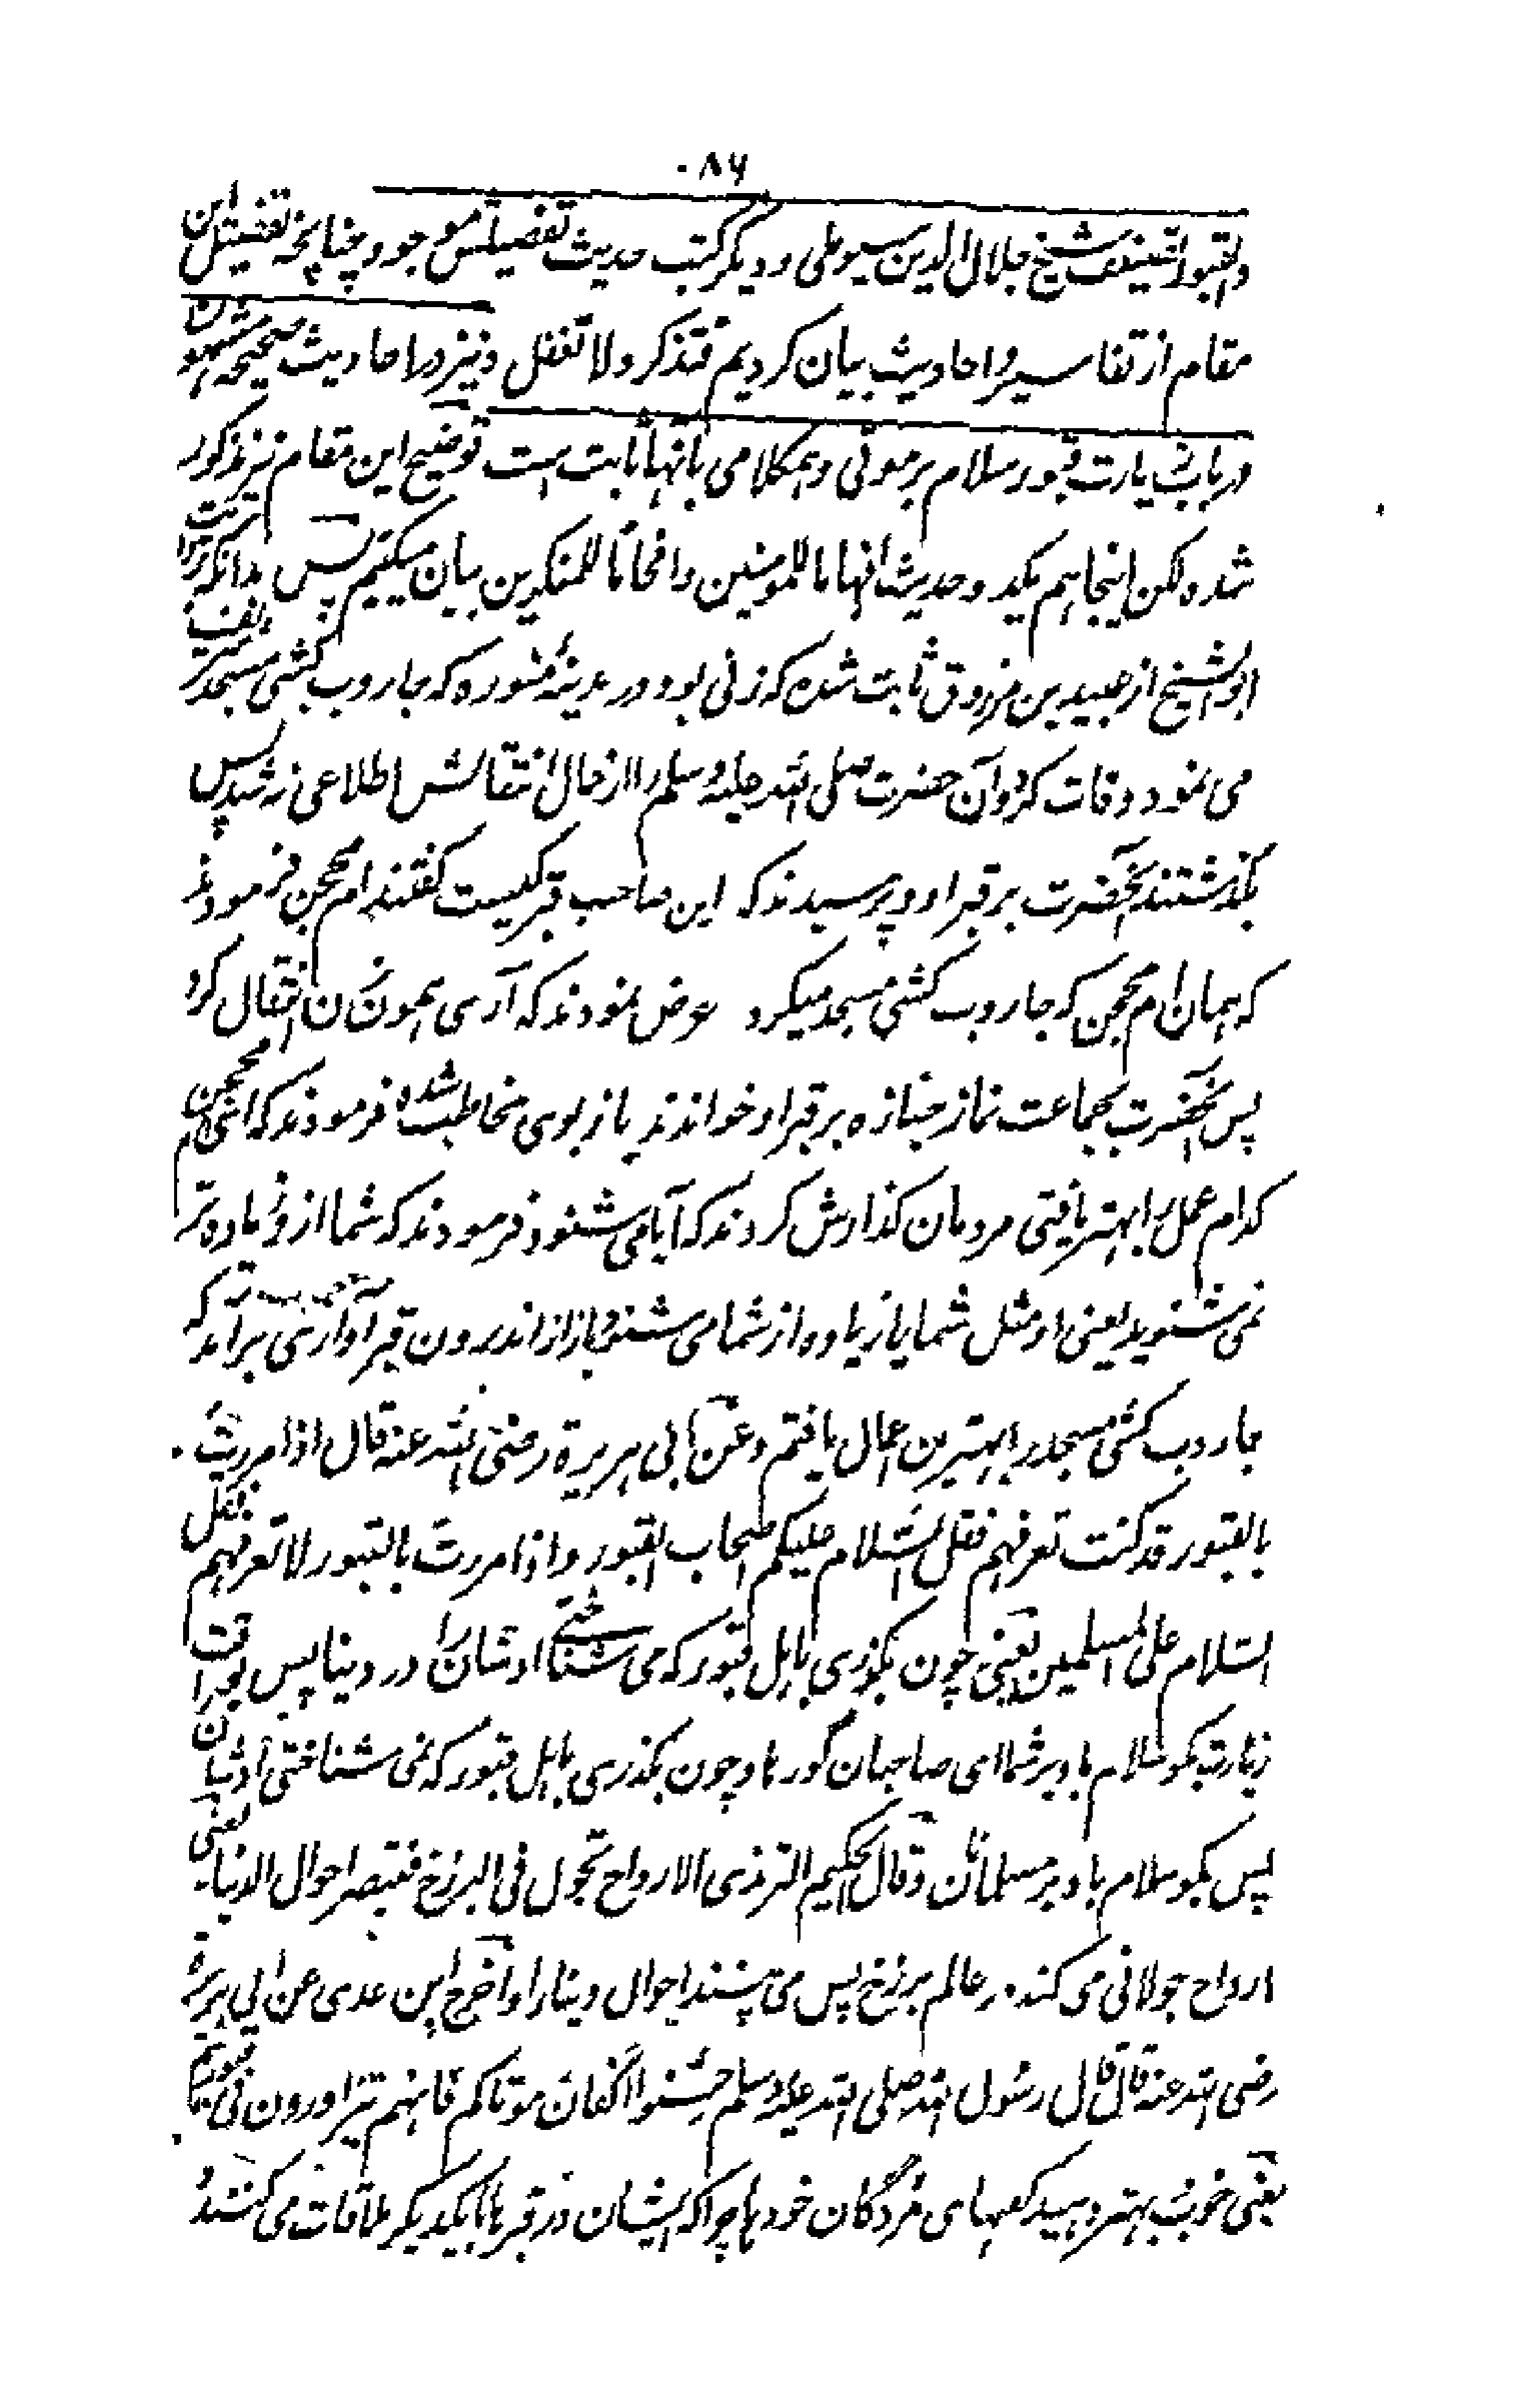 ۸۶
والقبور تصنیف شیخ جلال الدین سیوطی و دیگر کتب حدیث تفصیلش موجود چنانچه تفصیل این
مقام از تفاسیر و احادیث بیان کردیم فتذکر ولا تغفل ونیز در احادیث صحیحه مشهور
در باب زیارت قبور سلام بر موتی وهمکلامی با نها ثابت است توضیح این مقام نیز مذکور
شده لکن اینجا هم یکدو حدیث افهاما للمومنین وافحاما للمنکرین بیان میکنیم پس بدانکه
ابو الشیخ از عبید بن مرزوق ثابت شده که زنی بود در مدینهٔ منوره که جاروب کشی مسجد
می نمود وفات کرد و آن حضرت صلی الله علیه وسلم را از حال انتقالش اطلاعی نه شد پس
بگذشتند آنحضرت بر قبر او و پرسیدند که این صاحب قبر کیست گفتند ام محجن فرمودند
که همان ام محجن که جاروب کشی مسجد میکرد عرض نمودند که آری همون زن انتقال کرد
پس آنحضرت بجماعت نماز جنازه بر قبر او خواندند باز بوی مخاطب شده فرمودند که ای ام محجن
کدام عمل را بهتر یافتی مردمان گذارش کردند که آیا می شنود فرمودند که شما از و زیاده تر
نمی شنوید یعنی او مثل شما یا زیاده از شما می شنود باز از اندرون قبر آوازی برآمد که
جاروب کشی مسجد را بهترین اعمال یافتم وعن ابی هریرة رضی الله عنه قال اذا مررت
بالقبور قد کنت تعرفهم فقل السلام علیکم اصحاب القبور واذا مررت بالقبور لا تعرفهم فقل
السلام علی المسلمین یعنی چون بگذری باهل قبور که می شناختی اوشان را در دینا پس بوقت
زیارت بگو سلام باد بر شما ای صاحبان گورها و چون بگذری باهل قبور که نمی شناختی اوشان
پس بگو سلام باد بر مسلمانان وقال الحکیم الترمذی الارواح تجول فی البرزخ فتبصر احوال الدنیا یعنی
ارواح جولانی می کند در عالم برزخ پس می بینند احوال دینا را واخرج ابن عدی عن ابی هریرة
رضی الله عنه قال قال رسول الله صلی الله علیه وسلم حسنوا اکفان موتاکم فانهم یتزاورون فی قبورهم
یعنی خوب بهتر دهید کفنهای مردگان خود ها چرا که ایشان در قبرها بایکدیگر ملاقات می کنند